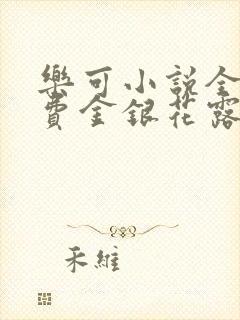 樂可小說全
費金銀花露
禾維